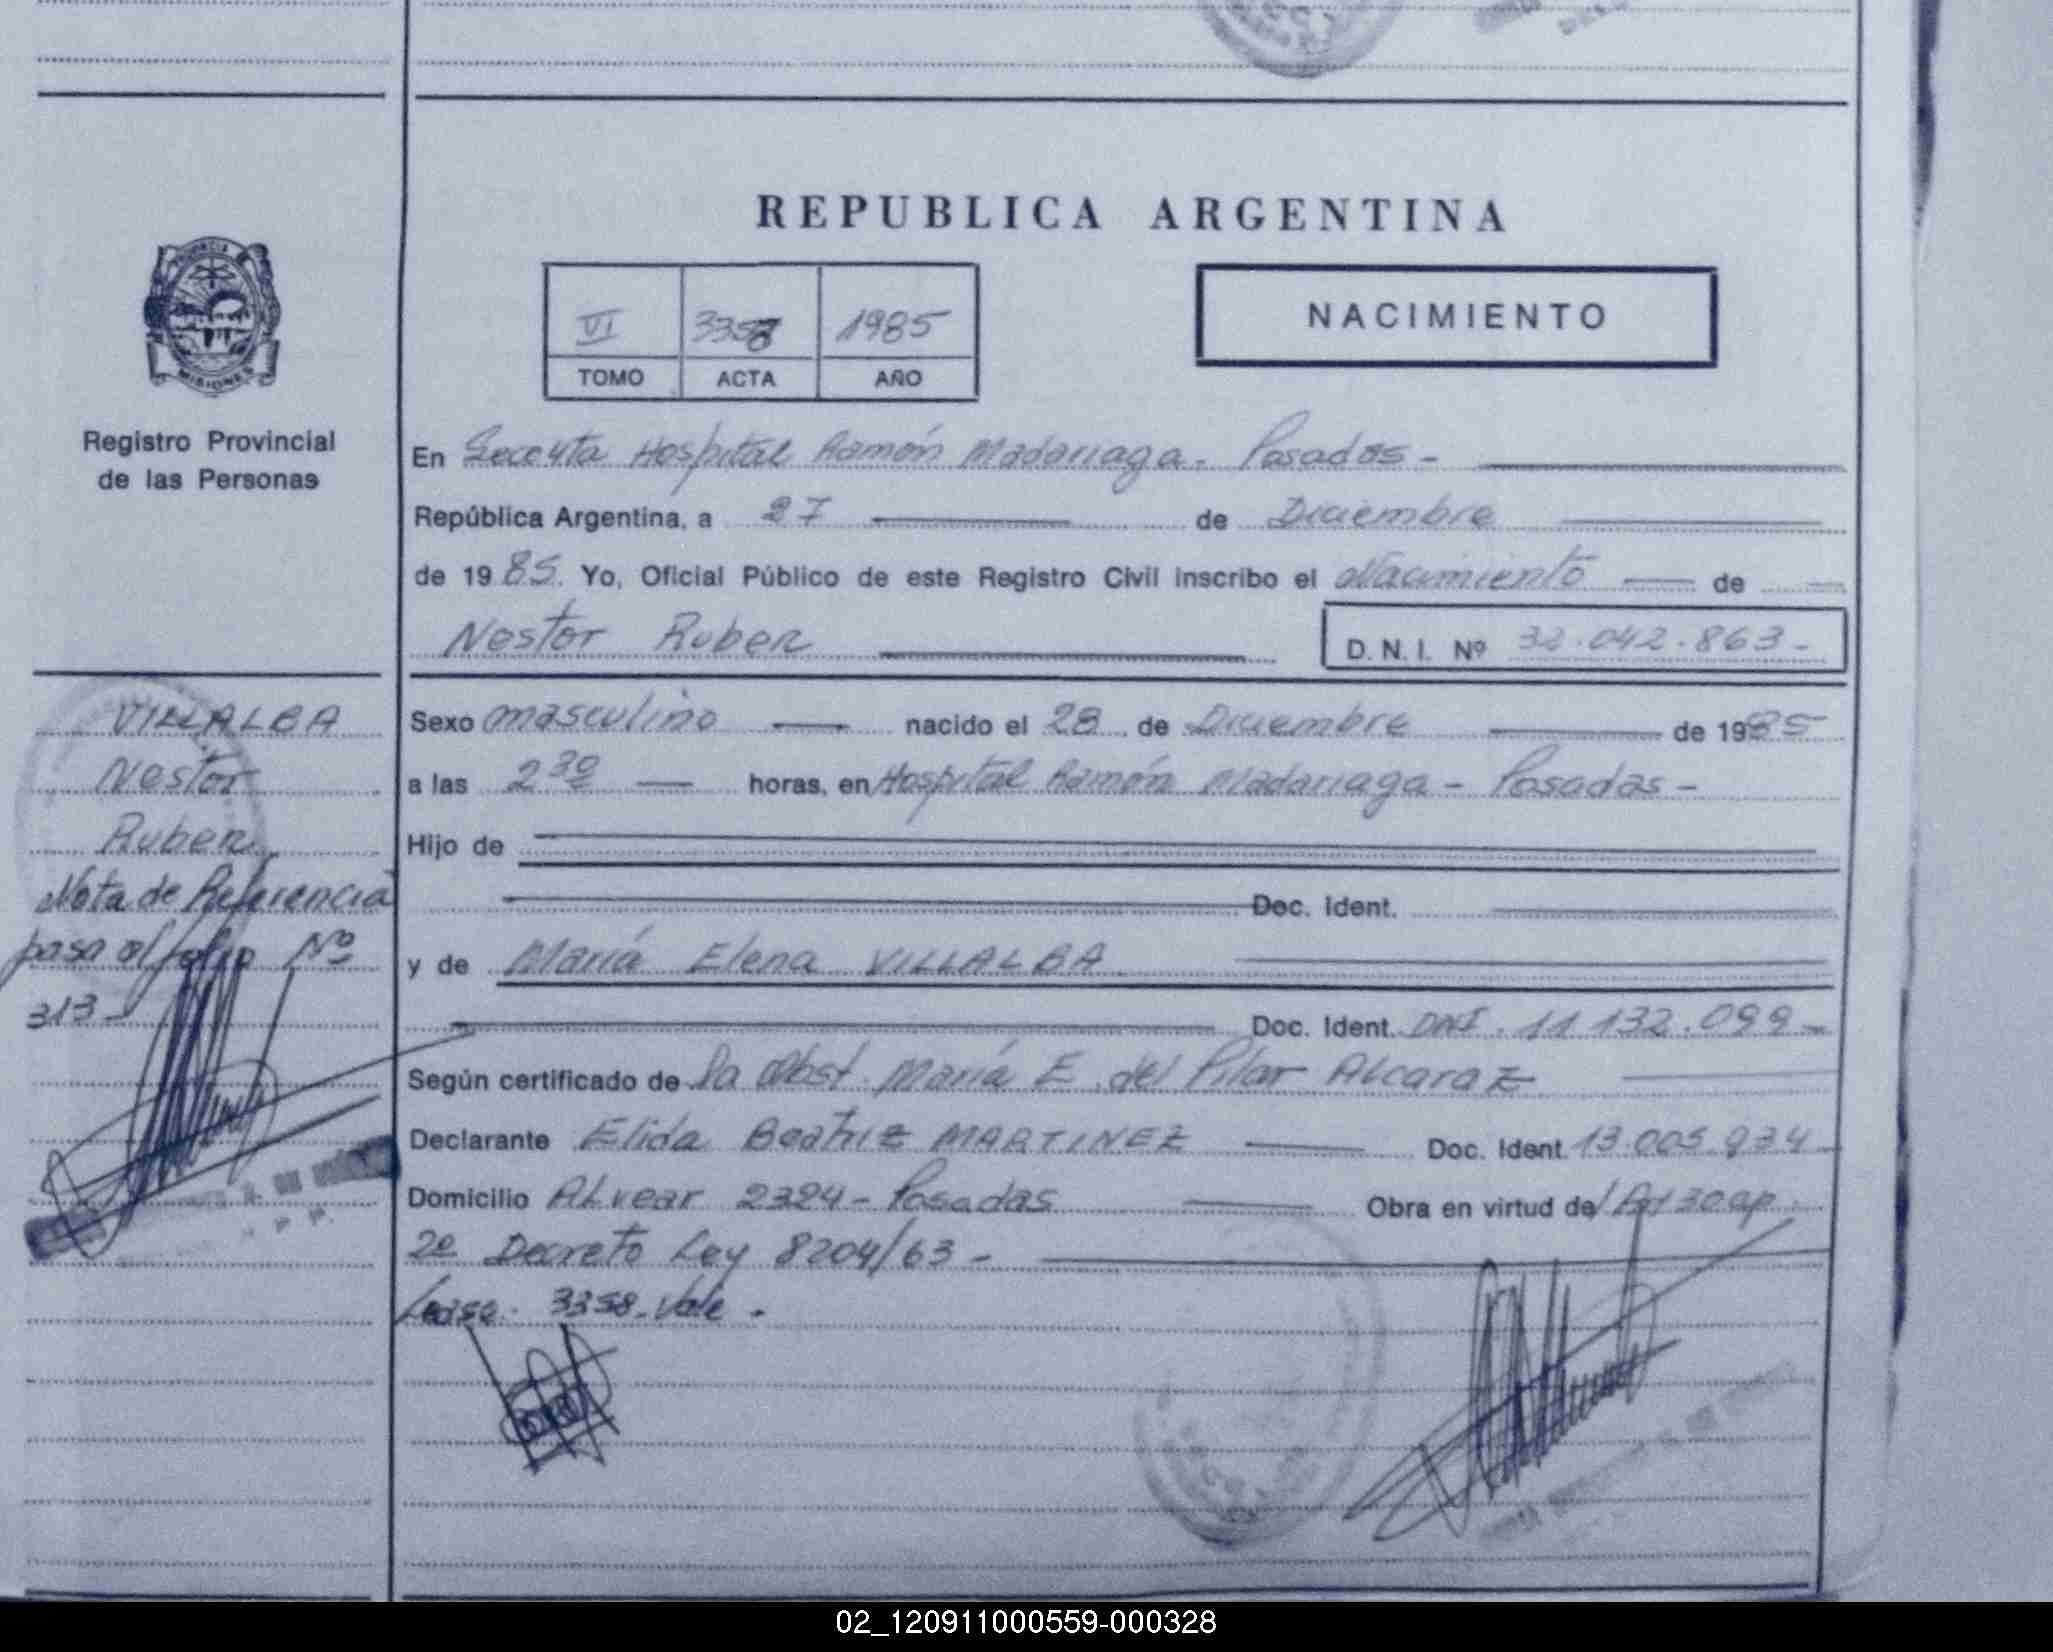 REPUBLICA ARGENTINA
VI 3358 1985
TOMO ACTA AÑO
NACIMIENTO
PROVINCIA
MISIONES
Registro Provincial
de las Personas
En Hospital Ramón Madariaga - Posadas -
República Argentina, a 27 de Diciembre
de 1985. Yo, Oficial Público de este Registro Civil inscribo el Nacimiento de
Nestor Ruben D.N.I. Nº 32.042.863-
VILLALBA
Nestor
Ruben
Nota de Referencia
pasa al folio Nº
313-
Sexo masculino nacido el 23 de Diciembre de 1985
a las 2 30 horas, en Hospital Ramón Madariaga - Posadas -
Hijo de
Doc. Ident.
y de María Elena VILLALBA
Doc. Ident. DNI. 11.132.099-
Según certificado de la Obst. María E. del Pilar ALcaraz
Declarante Elida Beatriz MARTINEZ Doc. Ident. 13.005.934
Domicilio ALvear 2324 - Posadas Obra en virtud del Art 30 ap.
2º Decreto Ley 8204/63 -
Lease: 3358. Vale -
02_120911000559-000328